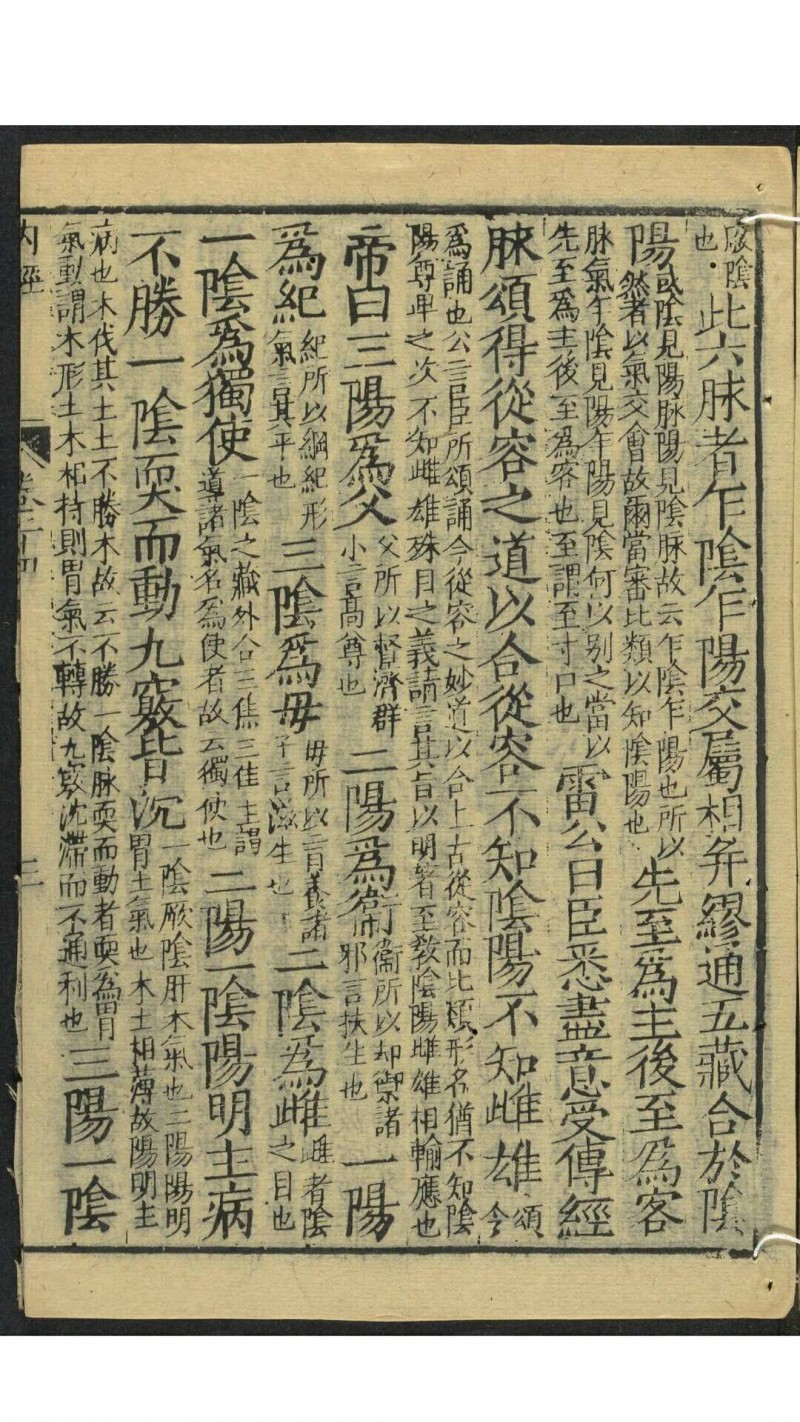 厥陰
也
此六脉者乍陰乍陽交屬相并繆通五藏合於陰
陽
或陰見陽脉陽見陰脉故云乍陰乍陽也所以
然者以氣交會故爾當審比類以知陰陽也
先至爲主後至爲客
脉氣乍陰見陽乍陽見陰何以别之當以
先至爲主後至爲客也至謂至寸口也
雷公曰臣悉盡意受傳經
脉頌得從容之道以合從容不知陰陽不知雌雄
頌
今
爲誦也公言臣所頌誦今從容之妙道以合上古從容而比類形名猶不知陰
陽尊卑之次不知雌雄殊目之義請言其旨以明著至教陰陽雌雄相輸應也
帝曰三陽爲父
父所以督濟群
小言高尊也
二陽爲衞
衞所以却禦諸
邪言扶生也
一陽
爲紀
紀所以綱紀形
氣言其平也
三陰爲母
母所以育養諸
子言滋生也
二陰爲雌
雌者陰
之目也
一陰爲獨使
一陰之藏外合三焦三焦主謂
導諸氣名爲使者故云獨使也
二陽一陰陽明主病
不勝一陰耎而動九竅皆沉
一陰厥陰肝木氣也二陽陽明
胃土氣也木土相薄故陽明主
病也木伐其土土不勝木故云不勝一陰脉耎而動者耎爲胃
氣動謂木形土木相持則胃氣不轉故九竅沈滯而不通利也
三陽一陰
内經
卷二十四
三